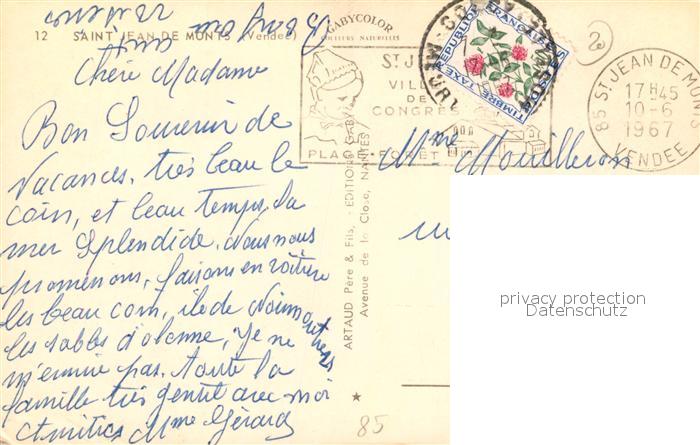 12 SAINT JEAN DE MONTS (Vendée)
GABYCOLOR
COULEURS NATURELLES
Chère Madame
Bon Souvenir de
Vacances. très beau le
coin, et beau temps, la
mer splendide. Nous nous
promenons, faisons en voiture
les beau coin, ile de Noirmoutiers
les sables d'olonne, je ne
m'ennuie pas. toute la
famille très gentil avec moi
Amitiés Mme Gérard
Mme Mouilleron
ARTAUD Père & Fils, - EDITIONS GABY
Avenue de la Close, NANTES
ST JE
VILLE
DE
CONGRES
PLAGE FORÊT
RÉPUBLIQUE FRANÇAISE
TIMBRE TAXE
85 ST JEAN DE MON
17H45
10-6
1967
VENDEE
privacy protection
Datenschutz
85